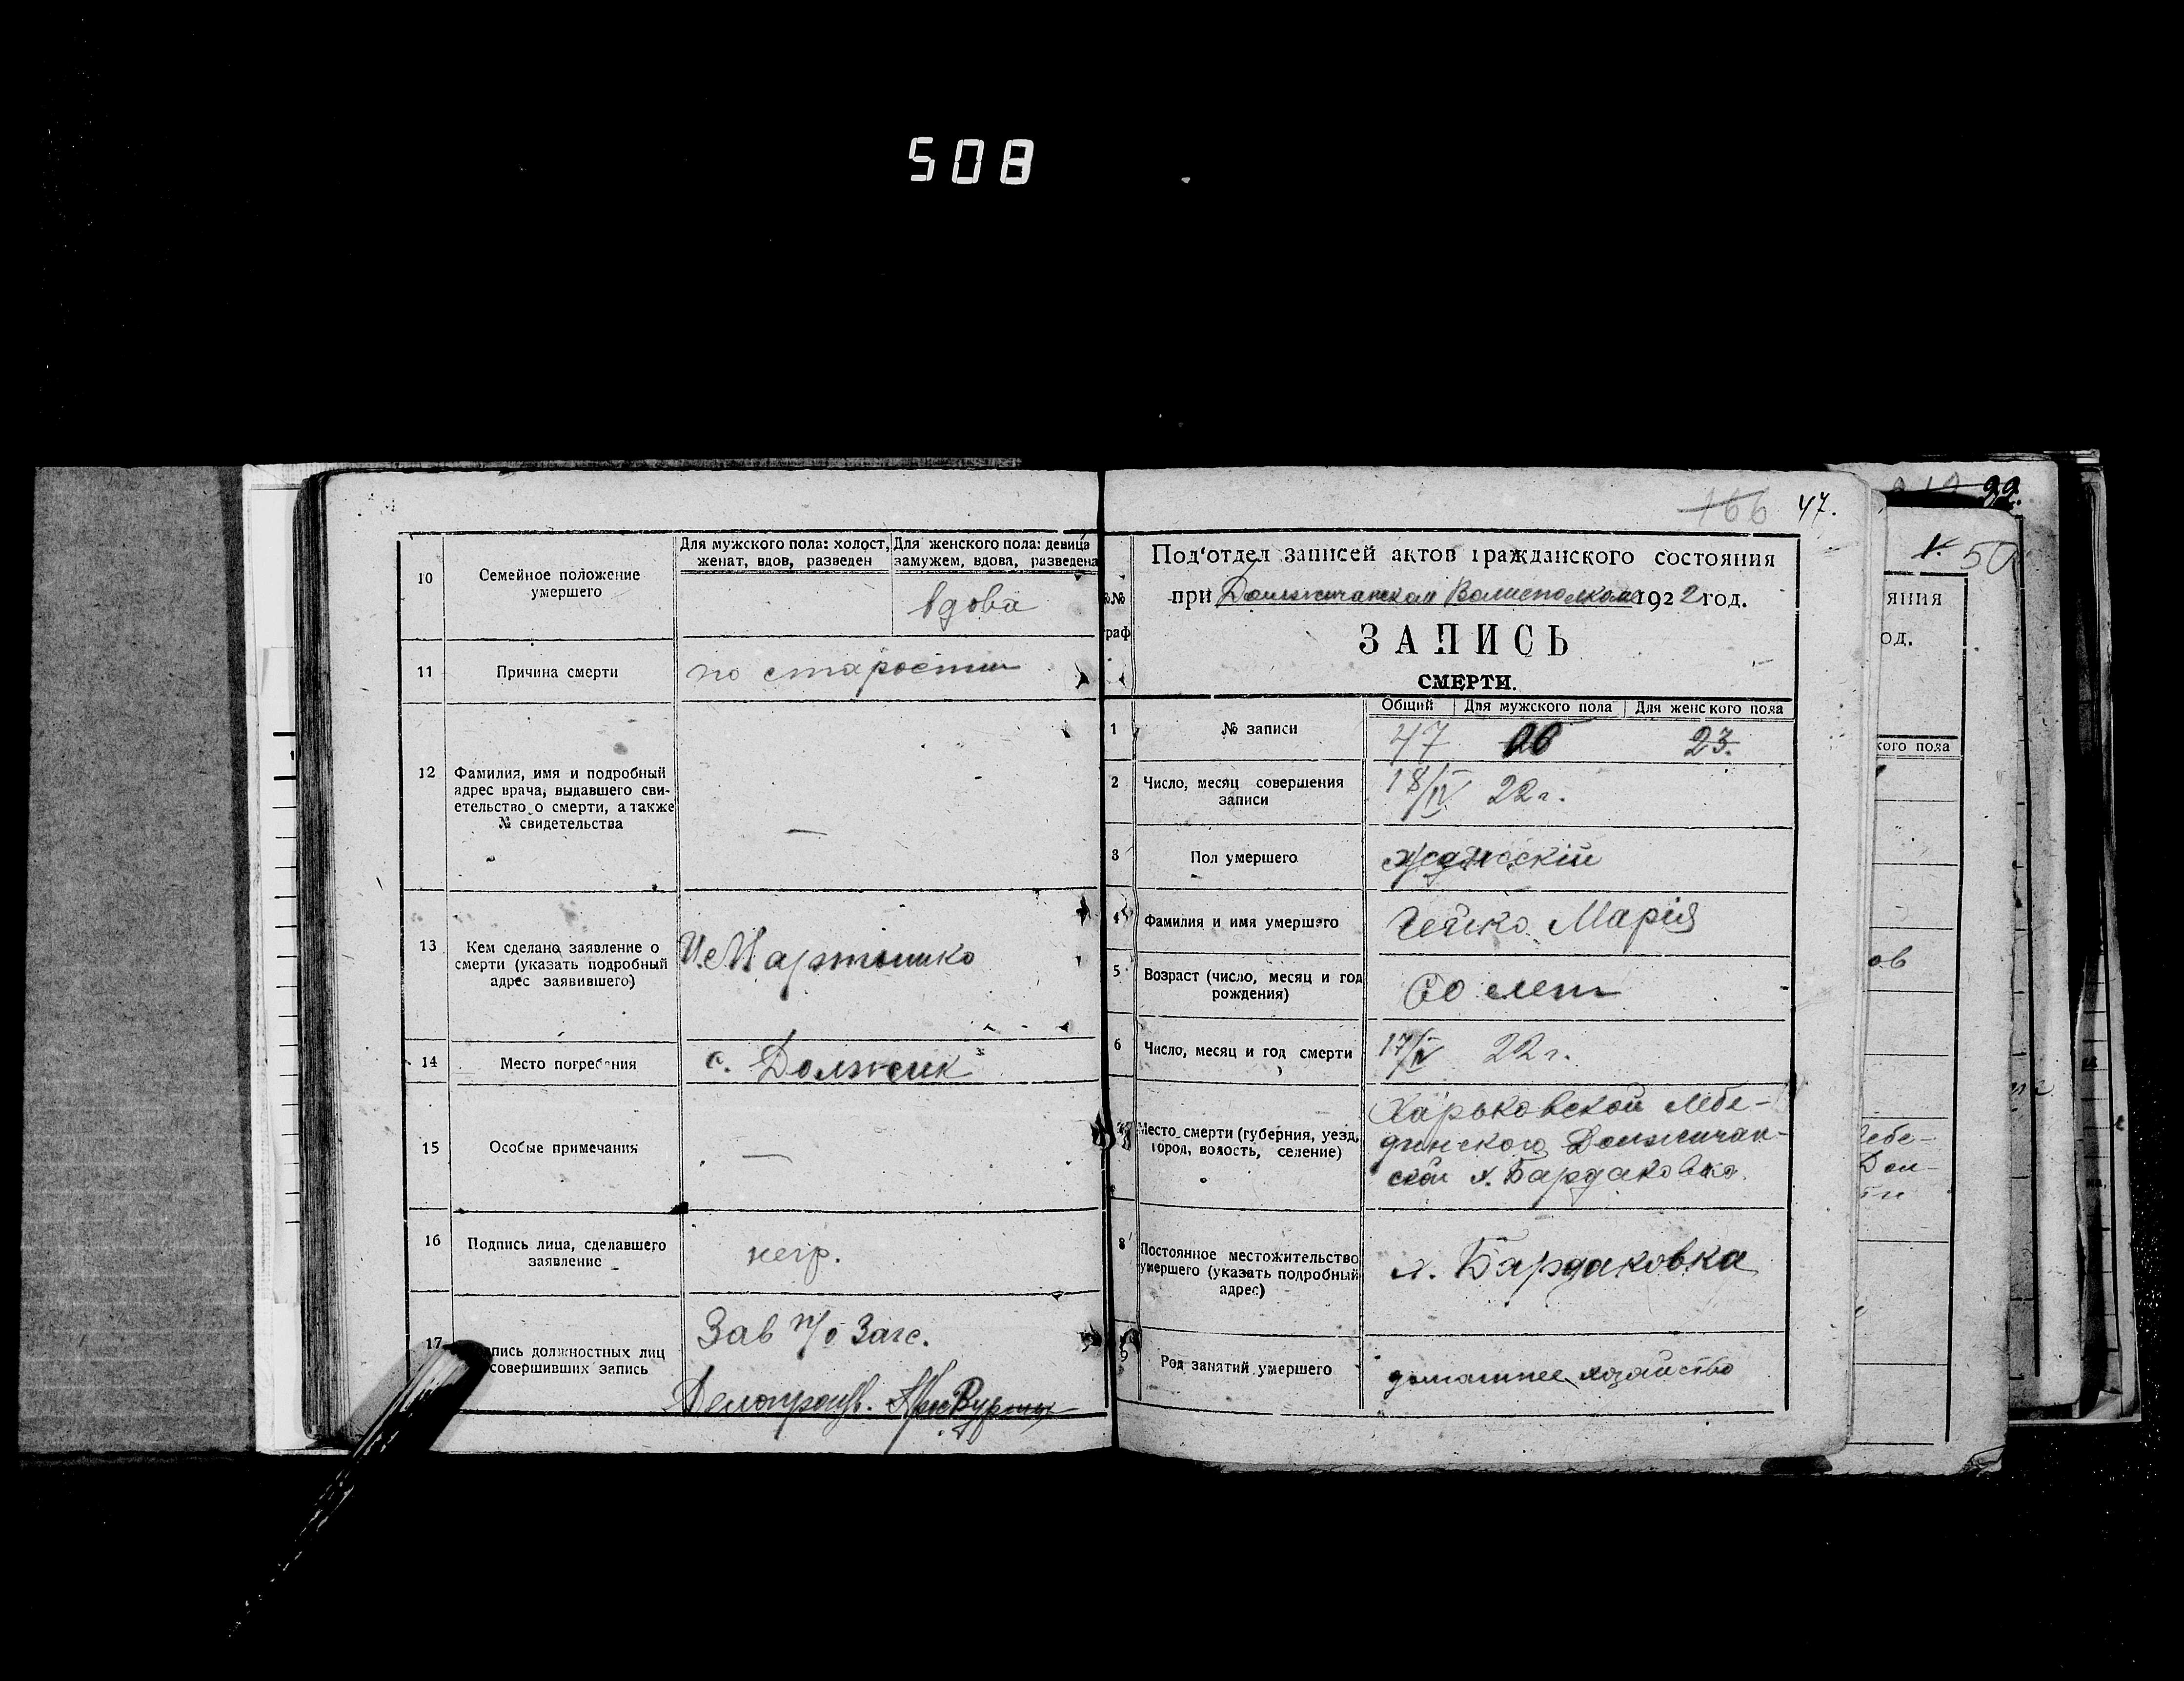 508
10
Семейное положение
умершего
Для мужского пола: холост,
женат, вдов, разведен
Для женского пола: девица
замужем, вдова, разведена
вдова
11
Причина смерти
по старости
12
Фамилия, имя и подробный
адрес врача, выдавшего сви-
етельство о смерти, а также
№ свидетельства
—
13
Кем сделано заявление о
смерти (указать подробный
адрес заявившего)
14
Место погребения
с. Должик
15
Особые примечания
—
16
Подпись лица, сделавшего
заявление
негр.
17
пись должностных лиц
совершивших запись
Зав п/о Загс.
Делопроизв.
166 47.
Под'отдел записей актов гражданского состояния
при Должичанском Волисполкоме 1922 год.
№№
граф
ЗАПИСЬ
СМЕРТИ.
Общий
Для мужского пола
Для женского пола
1
№ записи
47
26
23.
2
Число, месяц совершения
записи
18/IV 22 г.
3
Пол умершего
женскій
4
Фамилия и имя умершего
Марія
5
Возраст (число, месяц и год
рождения)
60 лет
6
Число, месяц и год смерти
17/IV 22 г.
7
Место смерти (губерния, уезд,
город, волость, селение)
Харьковской Лебе-
динского Должичан-
ской х. Бардаковка.
8
Постоянное местожительство
умершего (указать подробный
адрес)
х. Бардаковка
9
Род занятий умершего
домашнее хозяйство
99.
50
яния
од.
кого пола
ов
Лебе-
Дол-